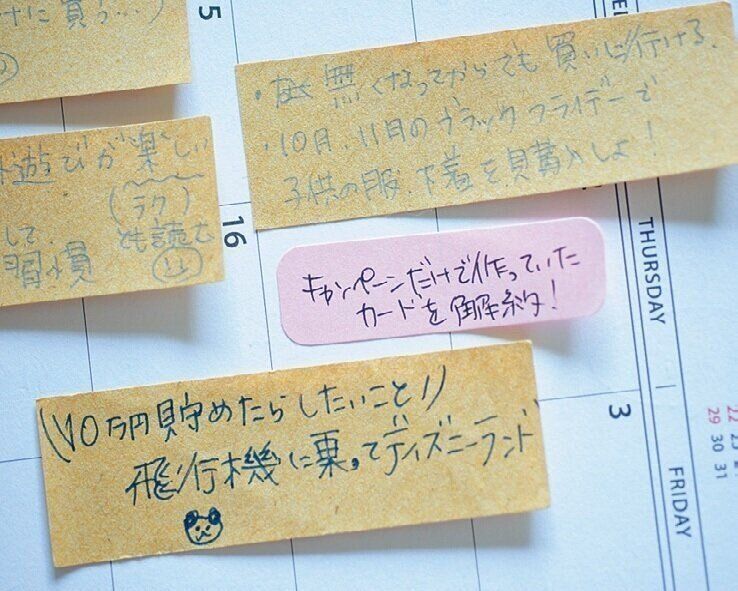 けに買う…)
5
・無くなってからでも買いに行ける.
・10月、11月のブラックフライデーで
子供の服、下着を購入しよ!
遊びが楽しい
(ラク)
して. とも読む
習慣
16
キャンペーンだけで作っていた
カードを解約!
THURSDAY
\\10万円貯めたらしたいこと//
飛行機に乗ってディズニーランド
3
FRIDAY
22 23
29 30
31